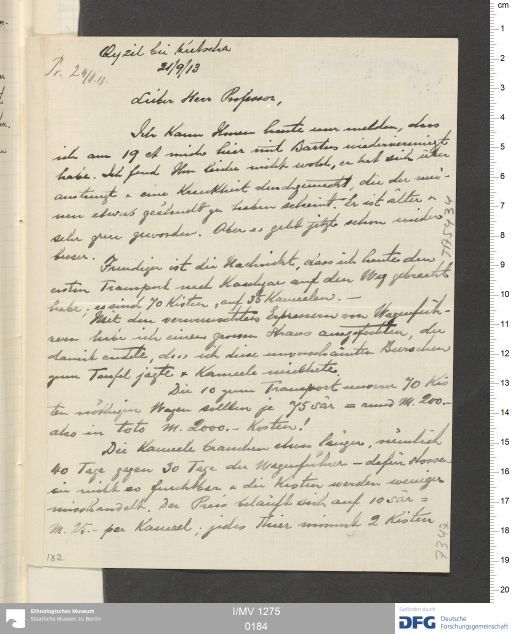 Qyzil bei Kutscha
21/9/13
Pr. 24/11.13.
Lieber Herr Professor,
Ich kann Ihnen heute nur melden, dass
ich am 19 ct mich hier mit Bartus wiedervereinigt
habe. Ich fand ihn leider nicht wohl, er hat sich über
anstrengt & eine Krankheit durchgemacht, die der mei-
nen etwas geähnelt zu haben scheint. Er ist älter &
sehr grau geworden. Aber es geht jetzt schon wieder
besser.
Freudiger ist die Nachricht, dass ich heute den
ersten Transport nach Kaschgar auf den Weg gebracht
habe; es sind 70 Kisten, auf 35 Kameelen. —
Mit den verwünschten Erpressern von Wagenfüh-
rern habe ich einen grossen Strauss ausgefochten, der
damit endete, dass ich diese unverschämten Burschen
zum Teufel jagte & Kameele mietete.
Die 10 zum Transport unserer 70 Kis
ten nötigen Wagen sollten je 75 sär = rund M. 200.-
also in toto M. 2000.- kosten!
Die Kameele brauchen etwas länger, nämlich
40 Tage gegen 30 Tage der Wagenführer — dafür stossen
sie nicht so furchtbar & die Kisten werden weniger
misshandelt. Der Preis beläuft sich auf 10 sär =
M. 25.- per Kameel; jedes Thier nimmt 2 Kisten
TA 5934
7342
182
cm
1
2
3
4
5
6
7
8
9
10
11
12
13
14
15
16
17
18
19
20
Ethnologisches Museum
Staatliche Museen zu Berlin
I/MV 1275
0184
Gefördert durch
DFG Deutsche
Forschungsgemeinschaft